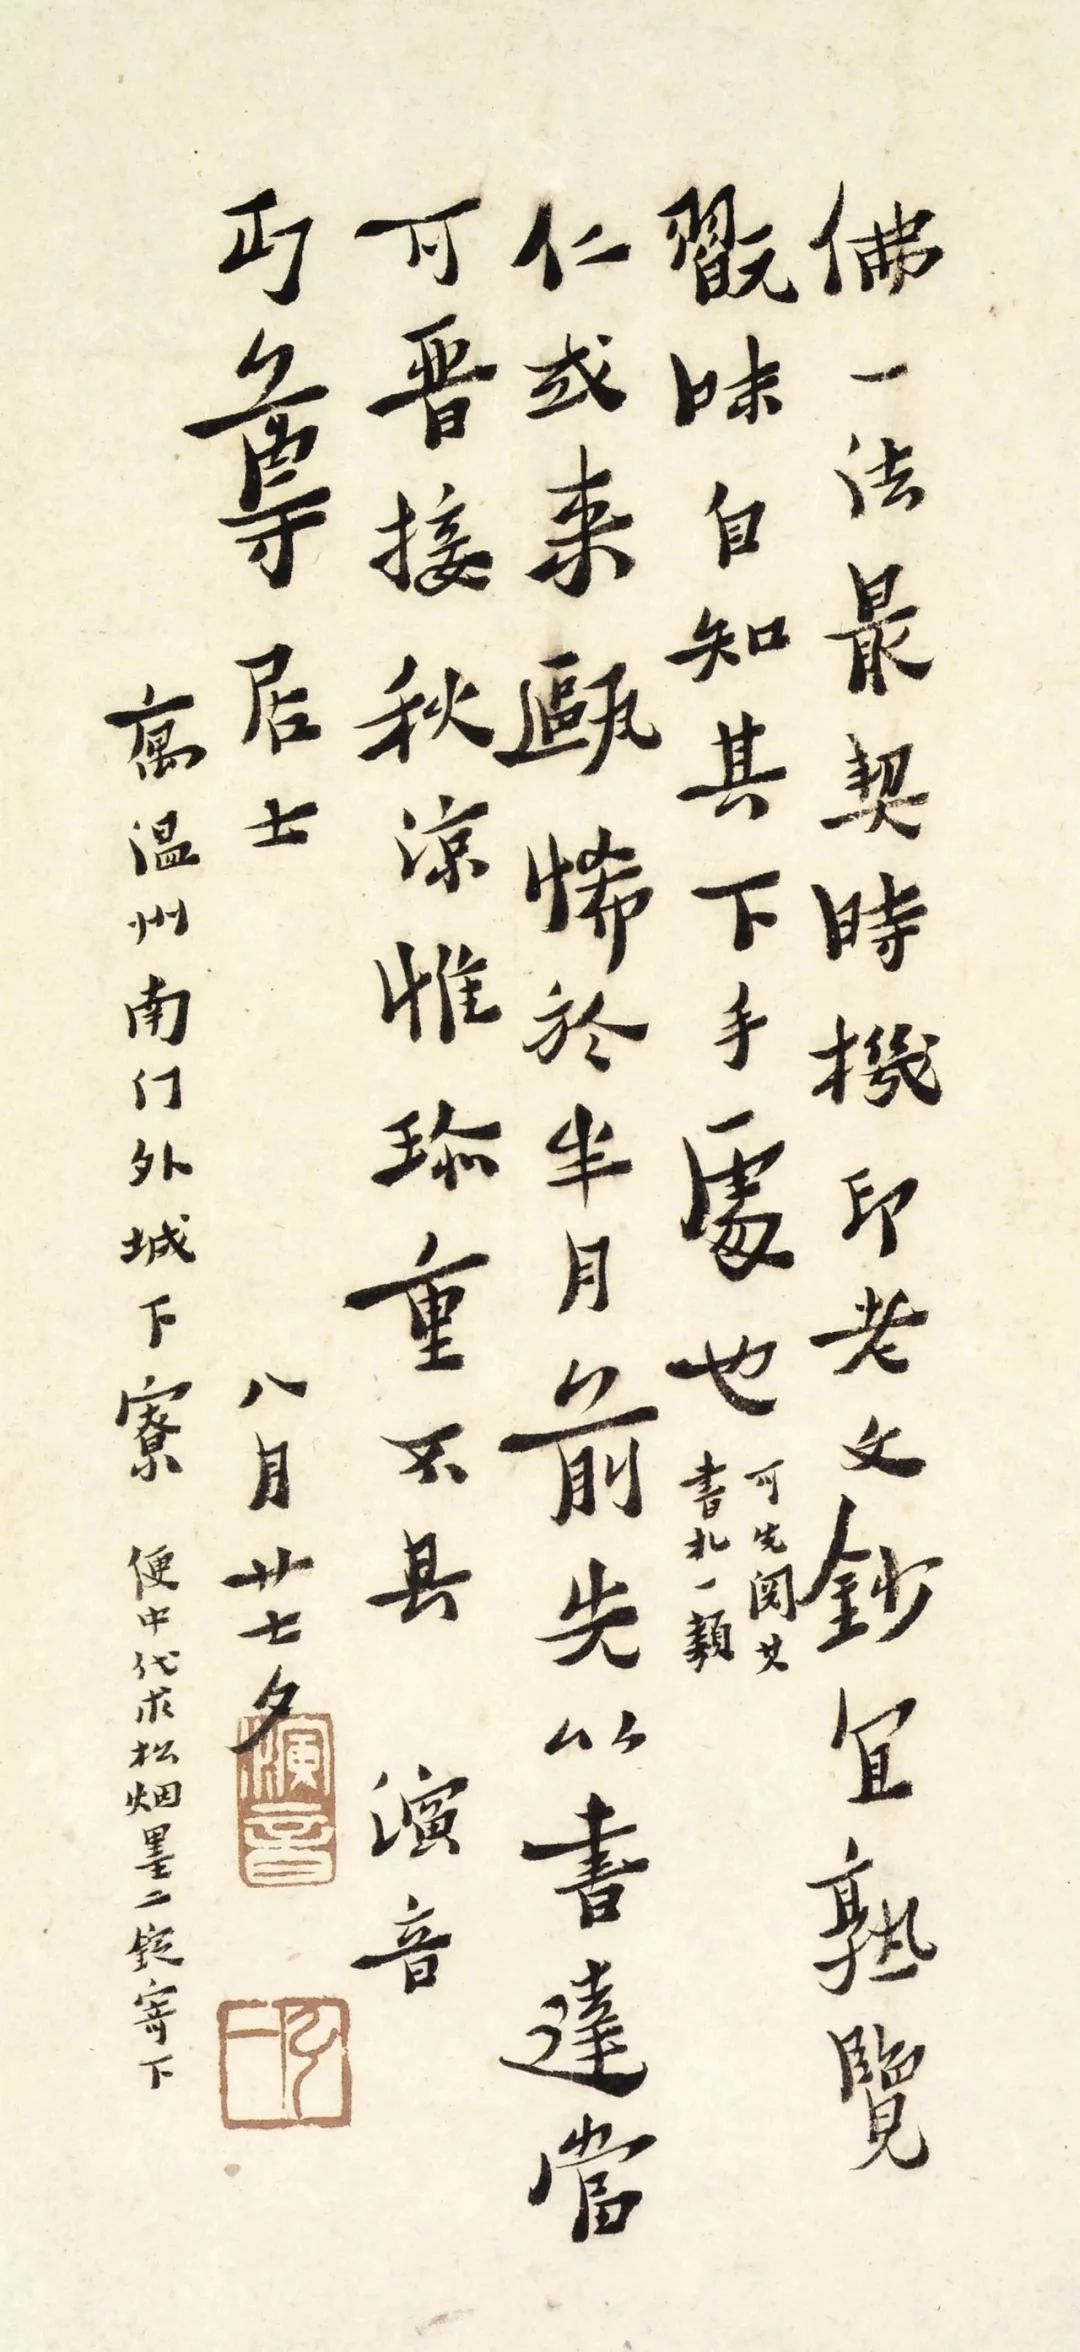 佛一法最契時機印老文鈔宜熟覽
翫味自知其下手處也
可先閱其
書札一類
仁或来甌悕於半月前先以書達當
可晋接秋涼惟珍重不具 演音
丏尊居士
八月廿七夕
寓温州南门外城下寮
便中代求松烟墨二錠寄下
演音
弘一